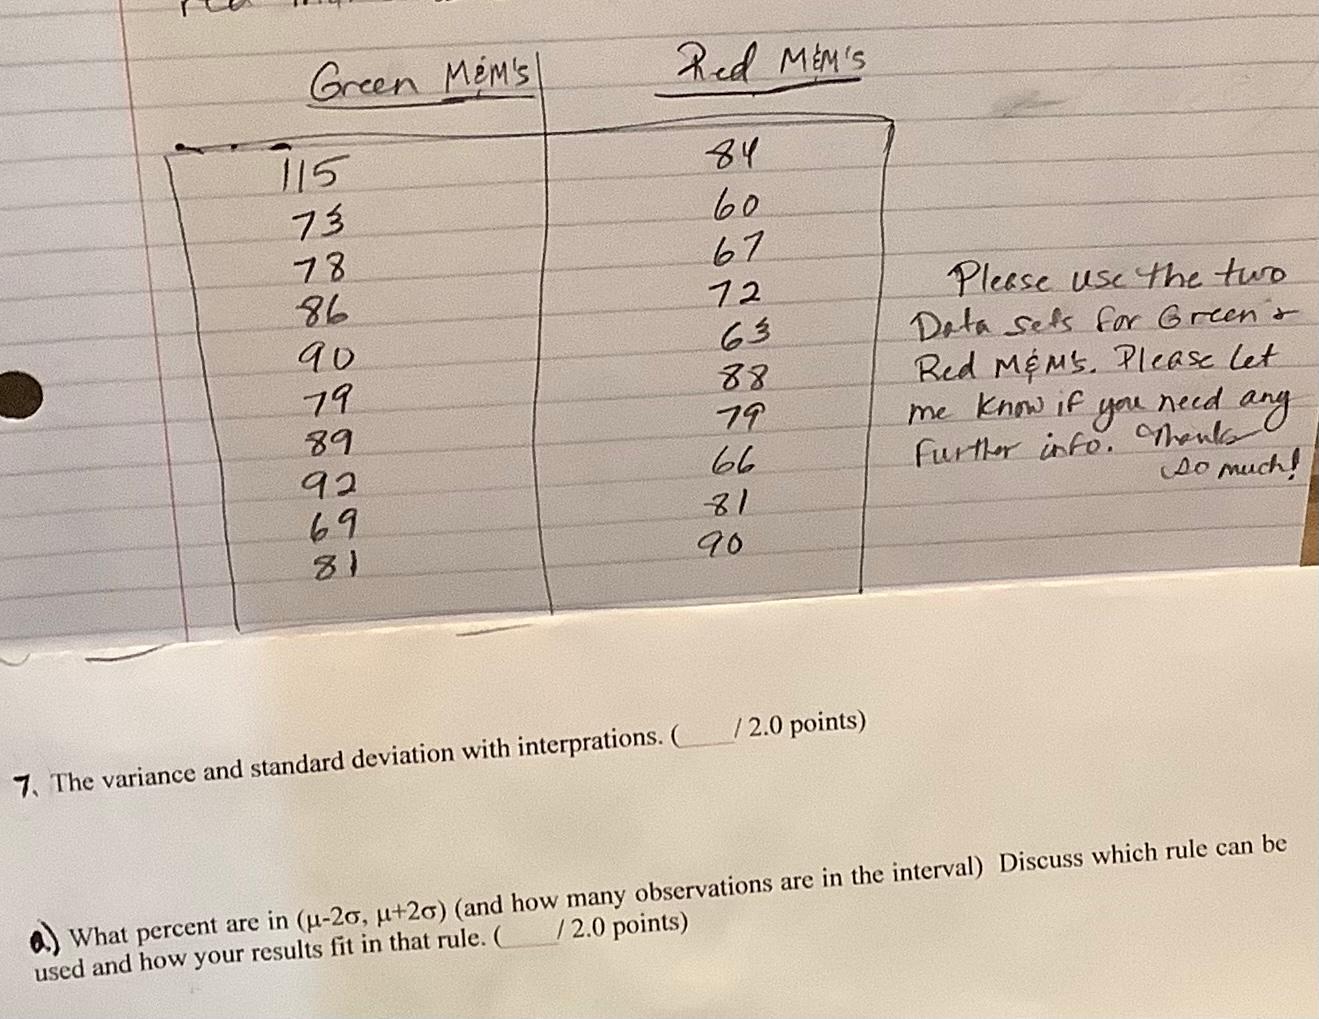 Green M&M's
Red M&M's
115
84
73
60
78
67
86
72
90
63
79
88
89
79
92
66
69
81
81
90
Please use the two
Data sets for Green &
Red M&M's. Please let
me know if you need any
further info. Thanks
so much!
7. The variance and standard deviation with interprations. ( / 2.0 points)
a.) What percent are in (μ-2σ, μ+2σ) (and how many observations are in the interval) Discuss which rule can be
used and how your results fit in that rule. ( / 2.0 points)